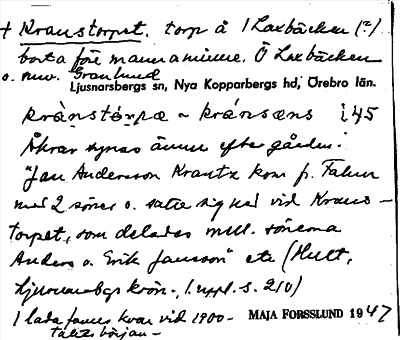 + Kranstorpet. torp å 1 Laxbäcken (?)
borta före mannaminne. Ö Laxbäcken
o. nuv. Granlund
Ljusnarsbergs sn, Nya Kopparbergs hd, Örebro län.
krànstórpæ ~ kránsæns i45
Åkrar synas ännu efter gården.
"Jan Andersson Krantz kom fr. Falun
med 2 söner o. satte sig ned vid Krans-
torpet, som delades mell. sönerna
Anders o. Erik Jansson" etc (Hult,
Ljusnarsbgs krön., 1. uppl. s. 210)
1 lada fanns kvar vid 1900- MAJA FORSSLUND 1947
talets början -